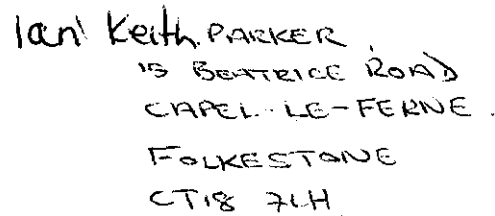 Ian Keith PARKER
15 BEATRICE ROAD
CAPEL-LE-FERNE
FOLKESTONE
CT18 7LH